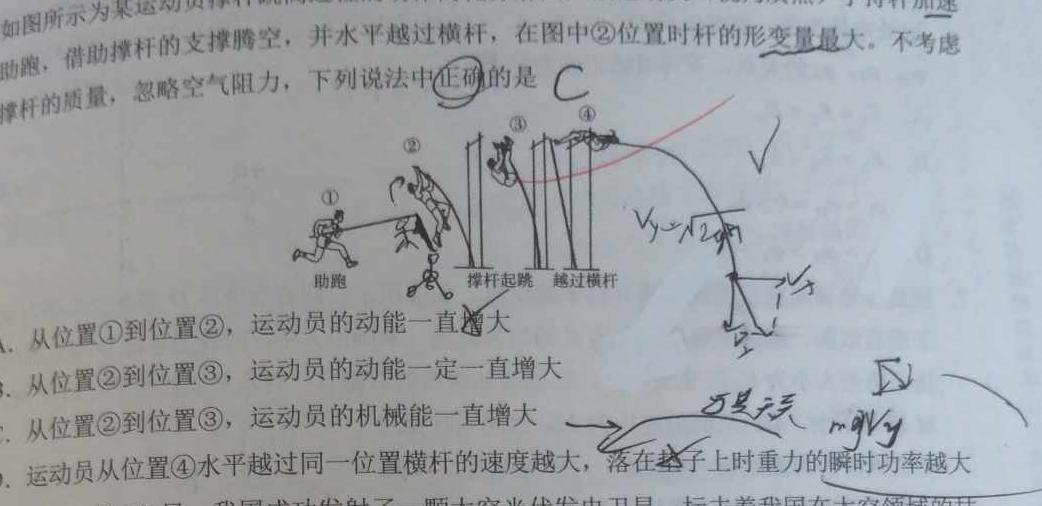 如图所示为某运动员撑杆跳高
加速
助跑，借助撑杆的支撑腾空，并水平越过横杆，在图中②位置时杆的形变量最大。不考虑
撑杆的质量，忽略空气阻力，下列说法中正确的是 C
①
②
③
④
助跑
撑杆起跳
越过横杆
A. 从位置①到位置②，运动员的动能一直增大
B. 从位置②到位置③，运动员的动能一定一直增大
C. 从位置②到位置③，运动员的机械能一直增大
mgVy
D. 运动员从位置④水平越过同一位置横杆的速度越大，落在垫子上时重力的瞬时功率越大